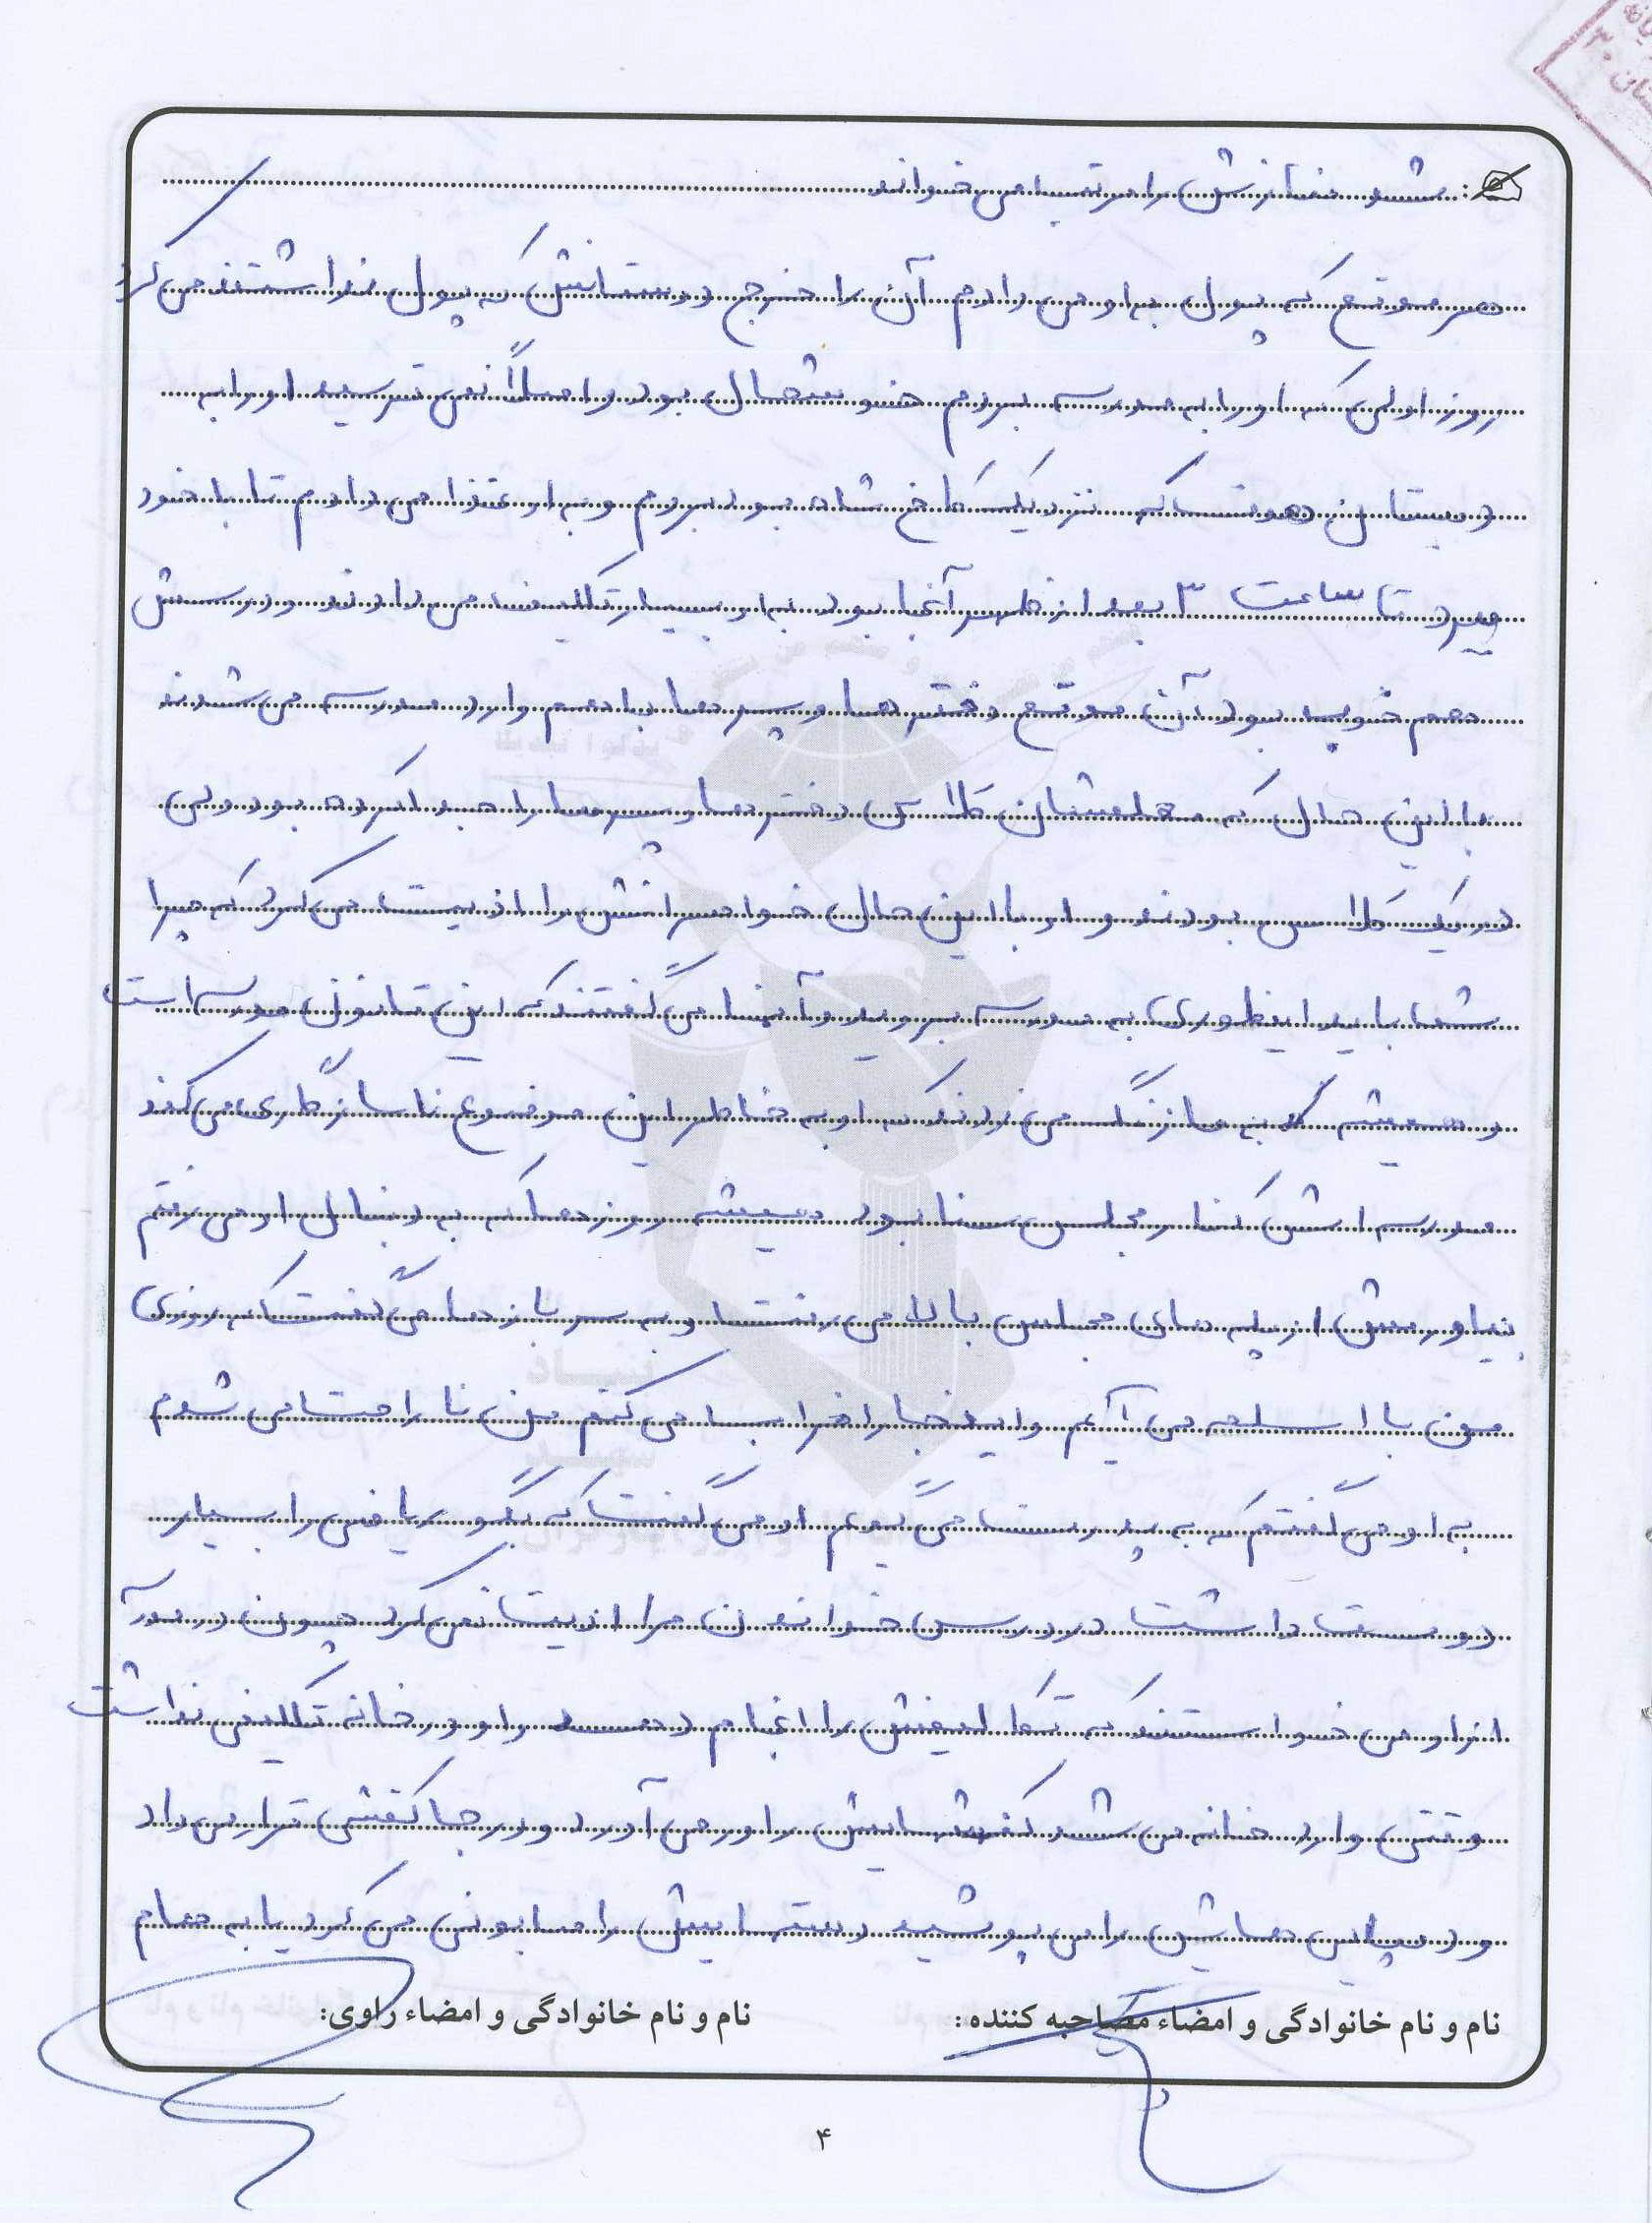 شد نمازش را مرتب می خواند
هر موقع که پول به او می دادم آن را خرج دوستانش که پول نداشتند می کرد
روز اولی که او را به مدرسه بردم خوشحال بود و اصلاً نمی ترسید او را به
دبستان که نزدیک کاخ شاه بود بردم و به او غذا می دادم تا با خود
ببرد تا ساعت ۳ بعد از ظهر آنجا بود به او بسیار تکلیف می دادند و درسش
هم خوب بود آن موقع دختر ها و پسر ها با هم وارد مدرسه می شدند
با این حال که معلمشان کلاس دختر ها و پسر ها را جدا کرده بود ولی
در یک کلاس بودند و او با این حال خواهرانش را اذیت می کرد که چرا
شما باید اینطوری به مدرسه بروید و آنها می گفتند که این قانون مدرسه است
و همیشه به ما زنگ می زدند که او به خاطر این موضوع ناسازگاری می کند
مدرسه اش کنار مجلس سنا بود همیشه روزها که به دنبال او می رفتم
بیاورمش از پله های مجلس بالا می رفت و به سربازها می گفت که روزی
من با اسلحه می آیم و اینجا را خراب می کنم من ناراحت می شدم
به او می گفتم که به پدرت می گویم او می گفت که بگو ریاضی را بسیار
دوست داشت در درس خواندن مرا اذیت نمی کرد چون در مدرسه
از او می خواستند که تکالیفش را انجام دهد و او در خانه تکلیفی نداشت
وقتی وارد خانه می شد کفشهایش را در می آورد و در جا کفشی قرار می داد
و دمپایی هایش را می پوشید دستهایش را صابونی می کرد یا به حمام
نام و نام خانوادگی و امضاء مصاحبه کننده: نام و نام خانوادگی و امضاء راوی:
۴